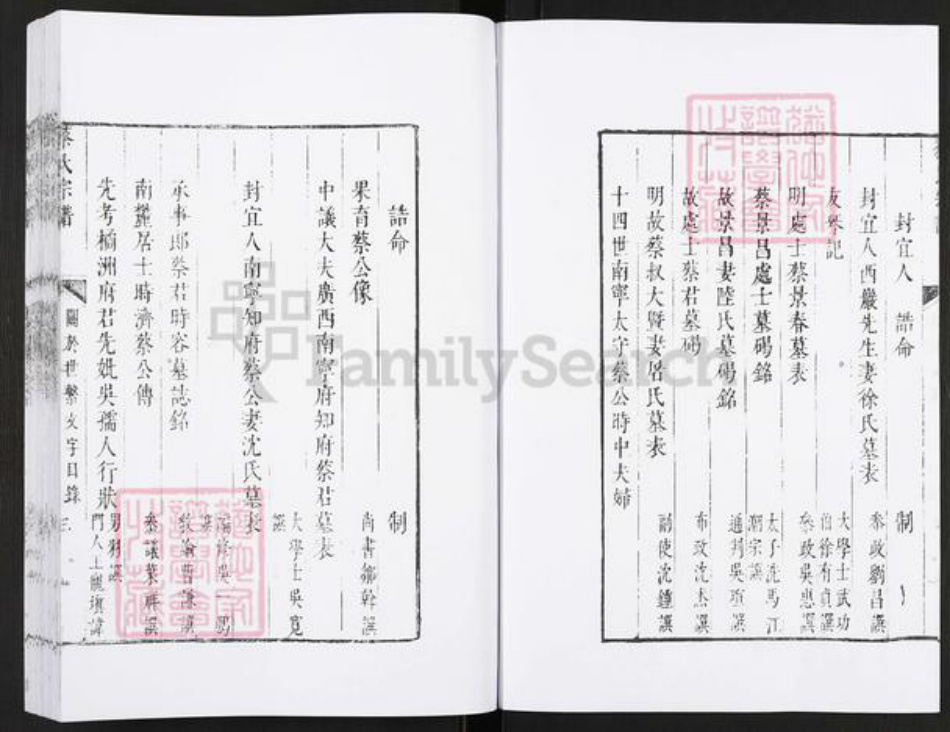 封宜人 誥命 制
封宜人西巖先生妻徐氏墓表 參政劉昌譔
友琴記 大學士武功伯徐有貞譔
明處士蔡景春墓表 參政吳惠譔
蔡景昌處士墓碣銘 太子洗馬江朝宗譔
故景昌妻陸氏墓碣銘 通判吳瑄譔
故處士蔡君墓碣 布政沈杰譔
明故蔡叔大暨妻屠氏墓表 副使沈鍾譔
十四世南寧太守蔡公時中夫婦
誥命 制
果育蔡公像 尚書鄒幹譔
中議大夫廣西南寧府知府蔡君墓表 大學士吳寬譔
封宜人南寧知府蔡公妻沈氏墓表 吳一鵬譔
承事郎蔡君時容墓誌銘 教諭曹謙譔
南麓居士時濟蔡公傳 參議葉祥譔
先考橘洲府君先妣吳孺人行狀 男羽譔 門人王寵填諱
蔡氏宗譜
關於世繫文字目錄 三
FamilySearch